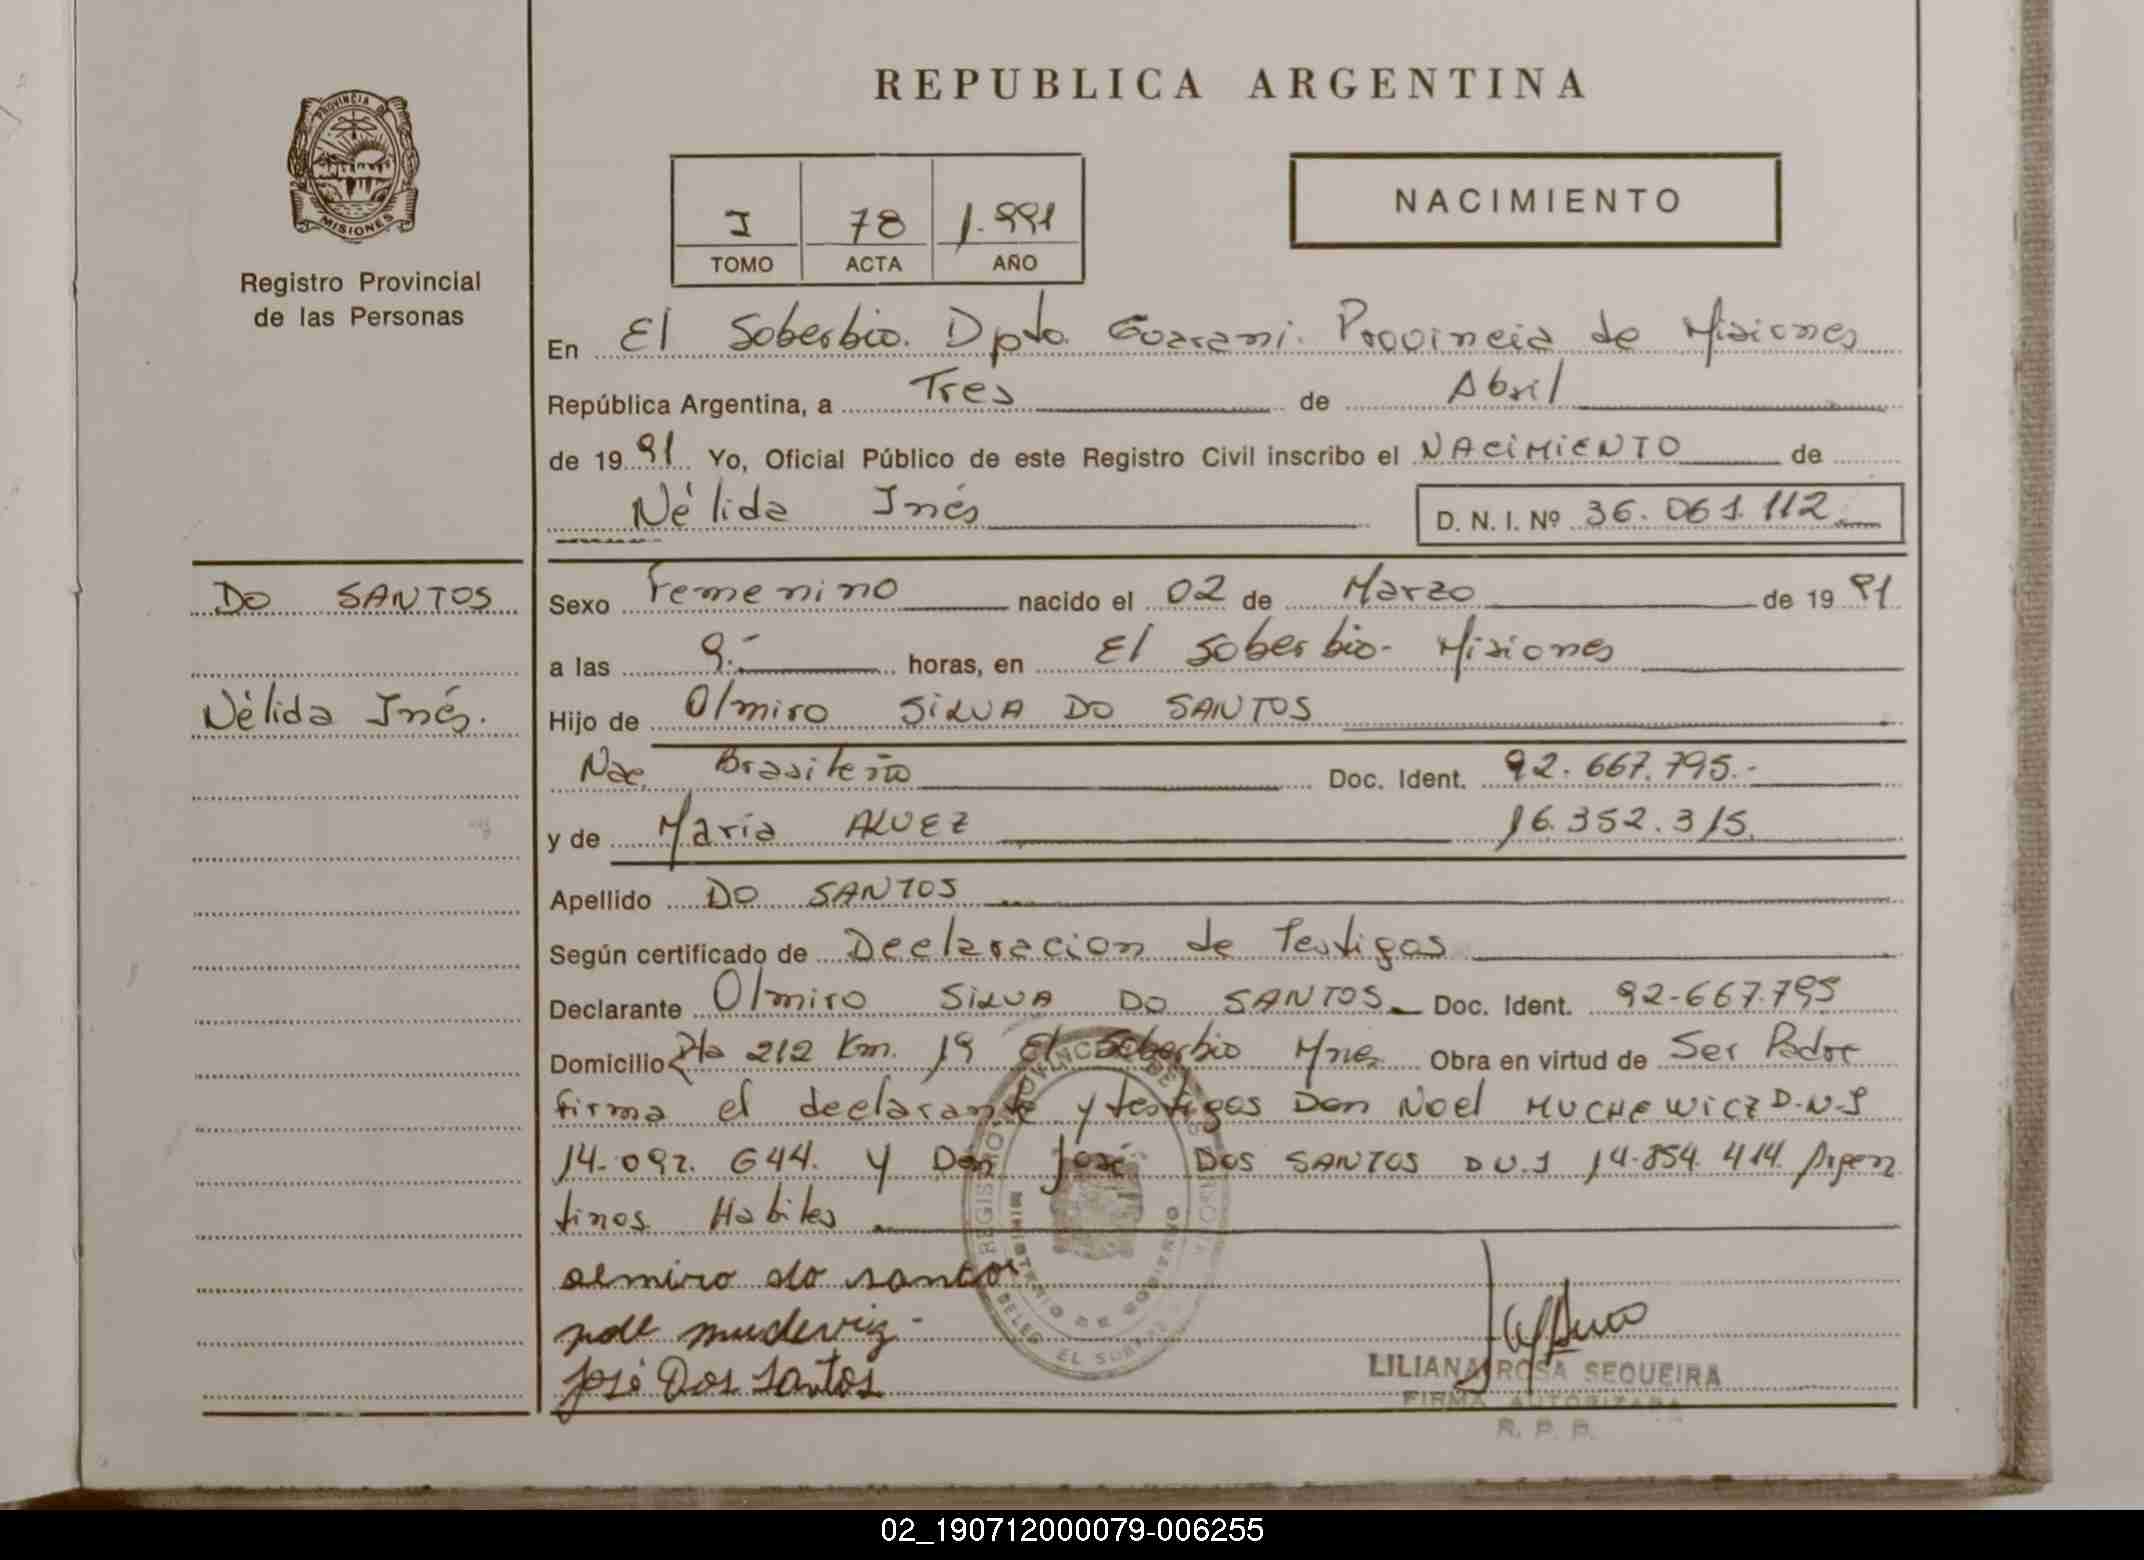 REPUBLICA ARGENTINA
PROVINCIA DE
MISIONES
Registro Provincial
de las Personas
I 78 1.991
TOMO ACTA AÑO
NACIMIENTO
En El Soberbio. Dpto. Guarani. Provincia de Misiones
República Argentina, a Tres de Abril
de 1991 Yo, Oficial Público de este Registro Civil inscribo el NACIMIENTO de
Nélida Inés D. N. I. Nº 36.061.112
DO SANTOS
Nélida Inés.
Sexo Femenino nacido el 02 de Marzo de 1991
a las 9.- horas, en El Soberbio- Misiones
Hijo de Olmiro SILVA DO SANTOS
Nac. Brasileña Doc. Ident. 92.667.795.-
y de Maria ALVEZ 16.352.315.
Apellido DO SANTOS
Según certificado de Declaracion de Testigos
Declarante Olmiro SILVA DO SANTOS Doc. Ident. 92-667.795
Domicilio Rta 212 Km. 19 El Soberbio Mnes Obra en virtud de Ser Padre
firma el declarante y testigos Don Noel MUCHEWICZ D.N.I
14.092.644. y Don José DOS SANTOS D.N.I 14.854.414. Argen
tinos Habiles
olmiro do santos
José Dos Santos
LILIANA ROSA SEQUEIRA
FIRMA AUTORIZADA
R. P. P.
02_190712000079-006255